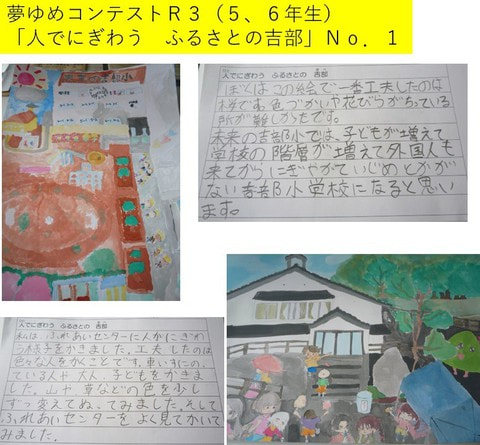 夢ゆめコンテストR３（５、６年生）
「人でにぎわう　ふるさとの吉部」Ｎｏ．１
人でにぎわう　ふるさとの　吉部
ぼくはこの絵で一番工夫したのは
桜です。色づかいや花びらがちっている
所が難しかったです。
未来の吉部小では、子どもが増えて
学校の階層が増えて外国人も
来てからにぎやかでいじめとかが
ない吉部小学校になると思い
ます。
人でにぎわう　ふるさとの　吉部
私は、ふれあいセンターに人がにぎわ
う様子をかきました。工夫したのは
色々な人をかくことです。車いすにのっ
ている人や、大人、子どもをかきま
した。山や草などの色を少し
ずつ変えてぬってみました。そして
ふれあいセンターをよく見てかいて
みました。